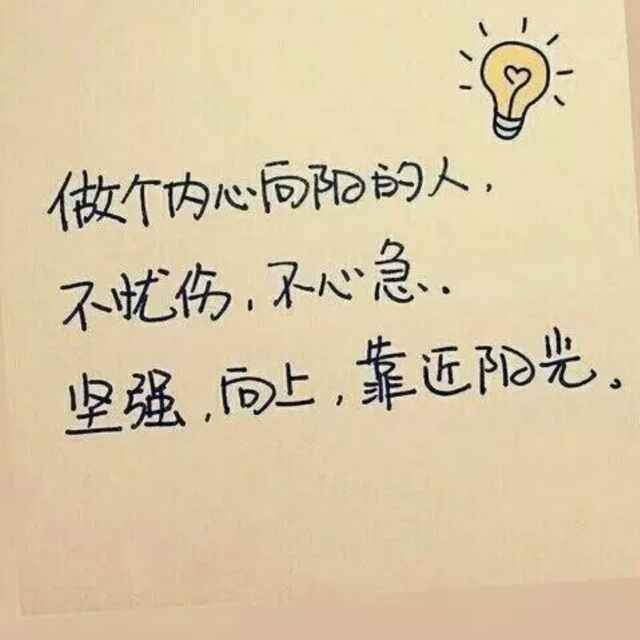 做个内心向阳的人,
不忧伤,不心急..
坚强,向上,靠近阳光。